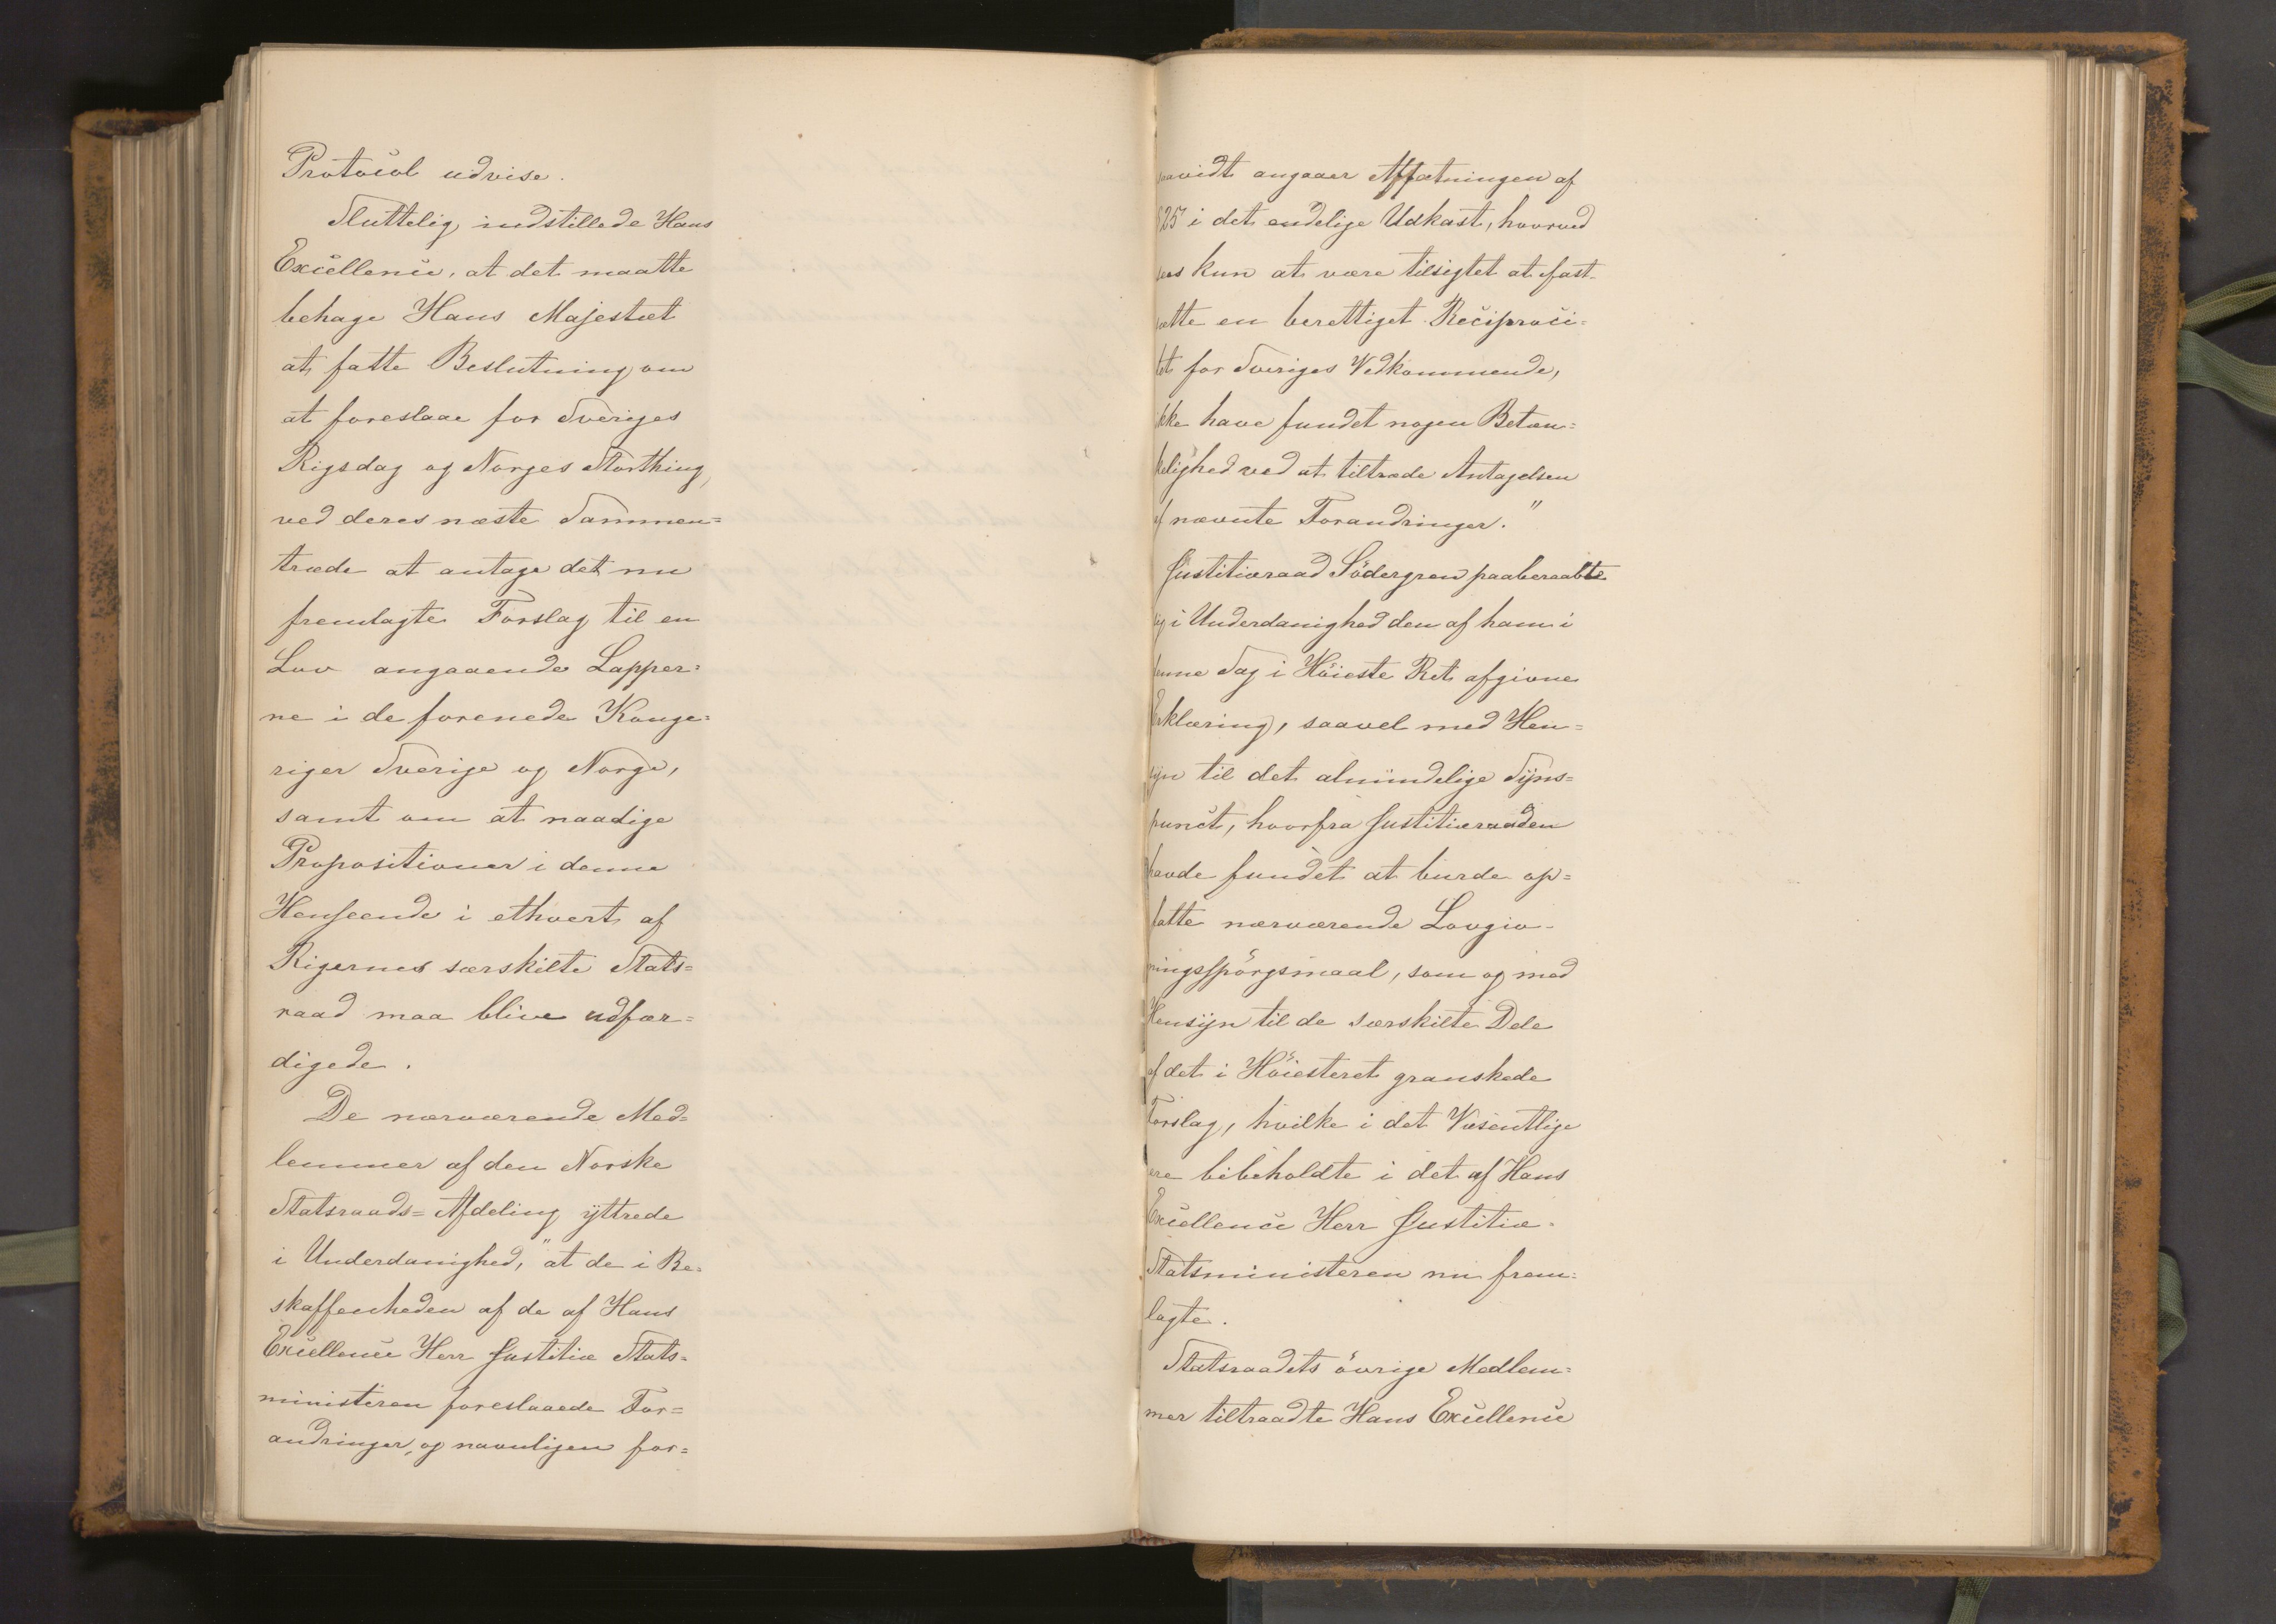 Protocol udvise.
Sluttelig indstillede Hans
Excellence, at det maatte
behage Hans Majestæt
at fatte Beslutning om
at foreslaae for Sveriges
Rigsdag og Norges Storthing,
ved deres næste Sammen=
træde at antage det nu
fremlagte Forslag til en
Lov angaaende Lapper=
ne i de forenede Konge=
riger Sverige og Norge,
samt om at naadige
Propositioner i denne
Henseende i ethvert af
Rigernes særskilte Stats=
raad maa blive udfær=
digede.
De nærværende Med=
lemmer af den Norske
Statsraads=Afdeling yttrede
i Underdanighed, "at de i Be=
skaffenheden af de af Hans
Excellence Herr Justitiæ Stats=
ministeren foreslaaede For=
andringer, og navnligen for=
saavidt angaaer Affatningen af
§25 i det endelige Udkast, hvorved
sees kun at være tilsigtet at fast-
sætte en berettiget Reciproci=
tet for Sveriges Vedkommende,
ikke have fundet nogen Betæn=
kelighed ved at tiltræde Antagelsen
af nævnte Forandringer."
Justitiæraad Södergren paaberaabte
sig i Underdanighed den af ham i
denne Sag i Höieste Ret afgivne
Erklæring, saavel med Hen=
syn til det almindelige Syns=
punct, hvorfra Justitiæraaden
havde fundet at burde op=
fatte nærværende Lovgiv-
ningsspörgsmaal, som og med
Hensyn til de særskilte Dele
af det i Höiesteret granskede
Forslag, hvilke i det Væsentlige
ere bibeholdte i det af Hans
Excellence Herr Justitiæ-
Statsministeren nu frem=
lagte.
Statsraadets övrige Medlem=
mer tiltraadte Hans Excellence